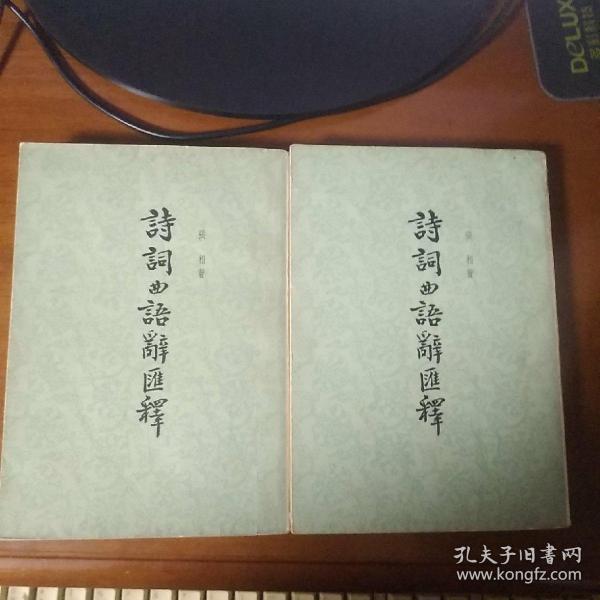 詩詞曲語辭匯釋
張相著
詩詞曲語辭匯釋
張相著
DeLUX
孔夫子旧書网
www.kongfz.com